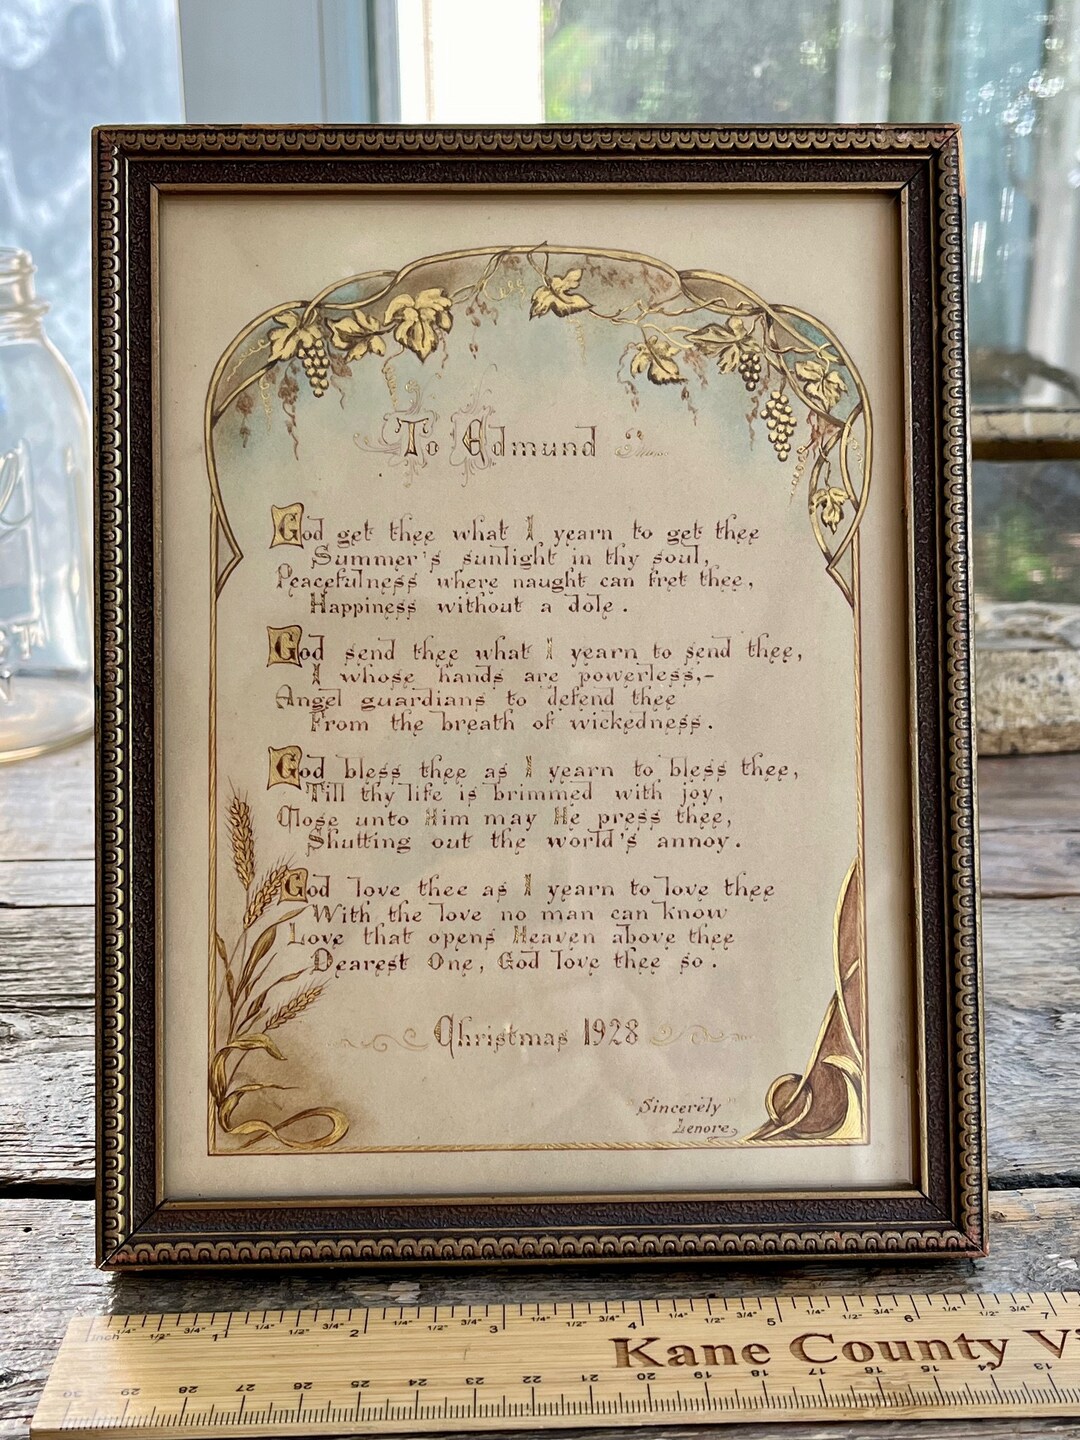 To Edmund
God get thee what I yearn to get thee
Summer's sunlight in thy soul,
Peacefulness where naught can fret thee,
Happiness without a dole.
God send thee what I yearn to send thee,
I whose hands are powerless,-
Angel guardians to defend thee
From the breath of wickedness.
God bless thee as I yearn to bless thee,
Till thy life is brimmed with joy,
Close unto Him may He press thee,
Shutting out the world's annoy.
God love thee as I yearn to love thee
With the love no man can know
Love that opens Heaven above thee
Dearest One, God love thee so.
Christmas 1928
"Sincerely"
Lenore
Inch 1/4" 1/2" 3/4" 1 1/4" 1/2" 3/4" 2 1/4" 1/2" 3/4" 3 1/4" 1/2" 3/4" 4 1/4" 1/2" 3/4" 5 1/4" 1/2" 3/4" 6 1/4" 1/2" 3/4" 7
Kane County
30 29 28 27 26 25 24 23 22 21 20 19 18 17 16 15 14 13